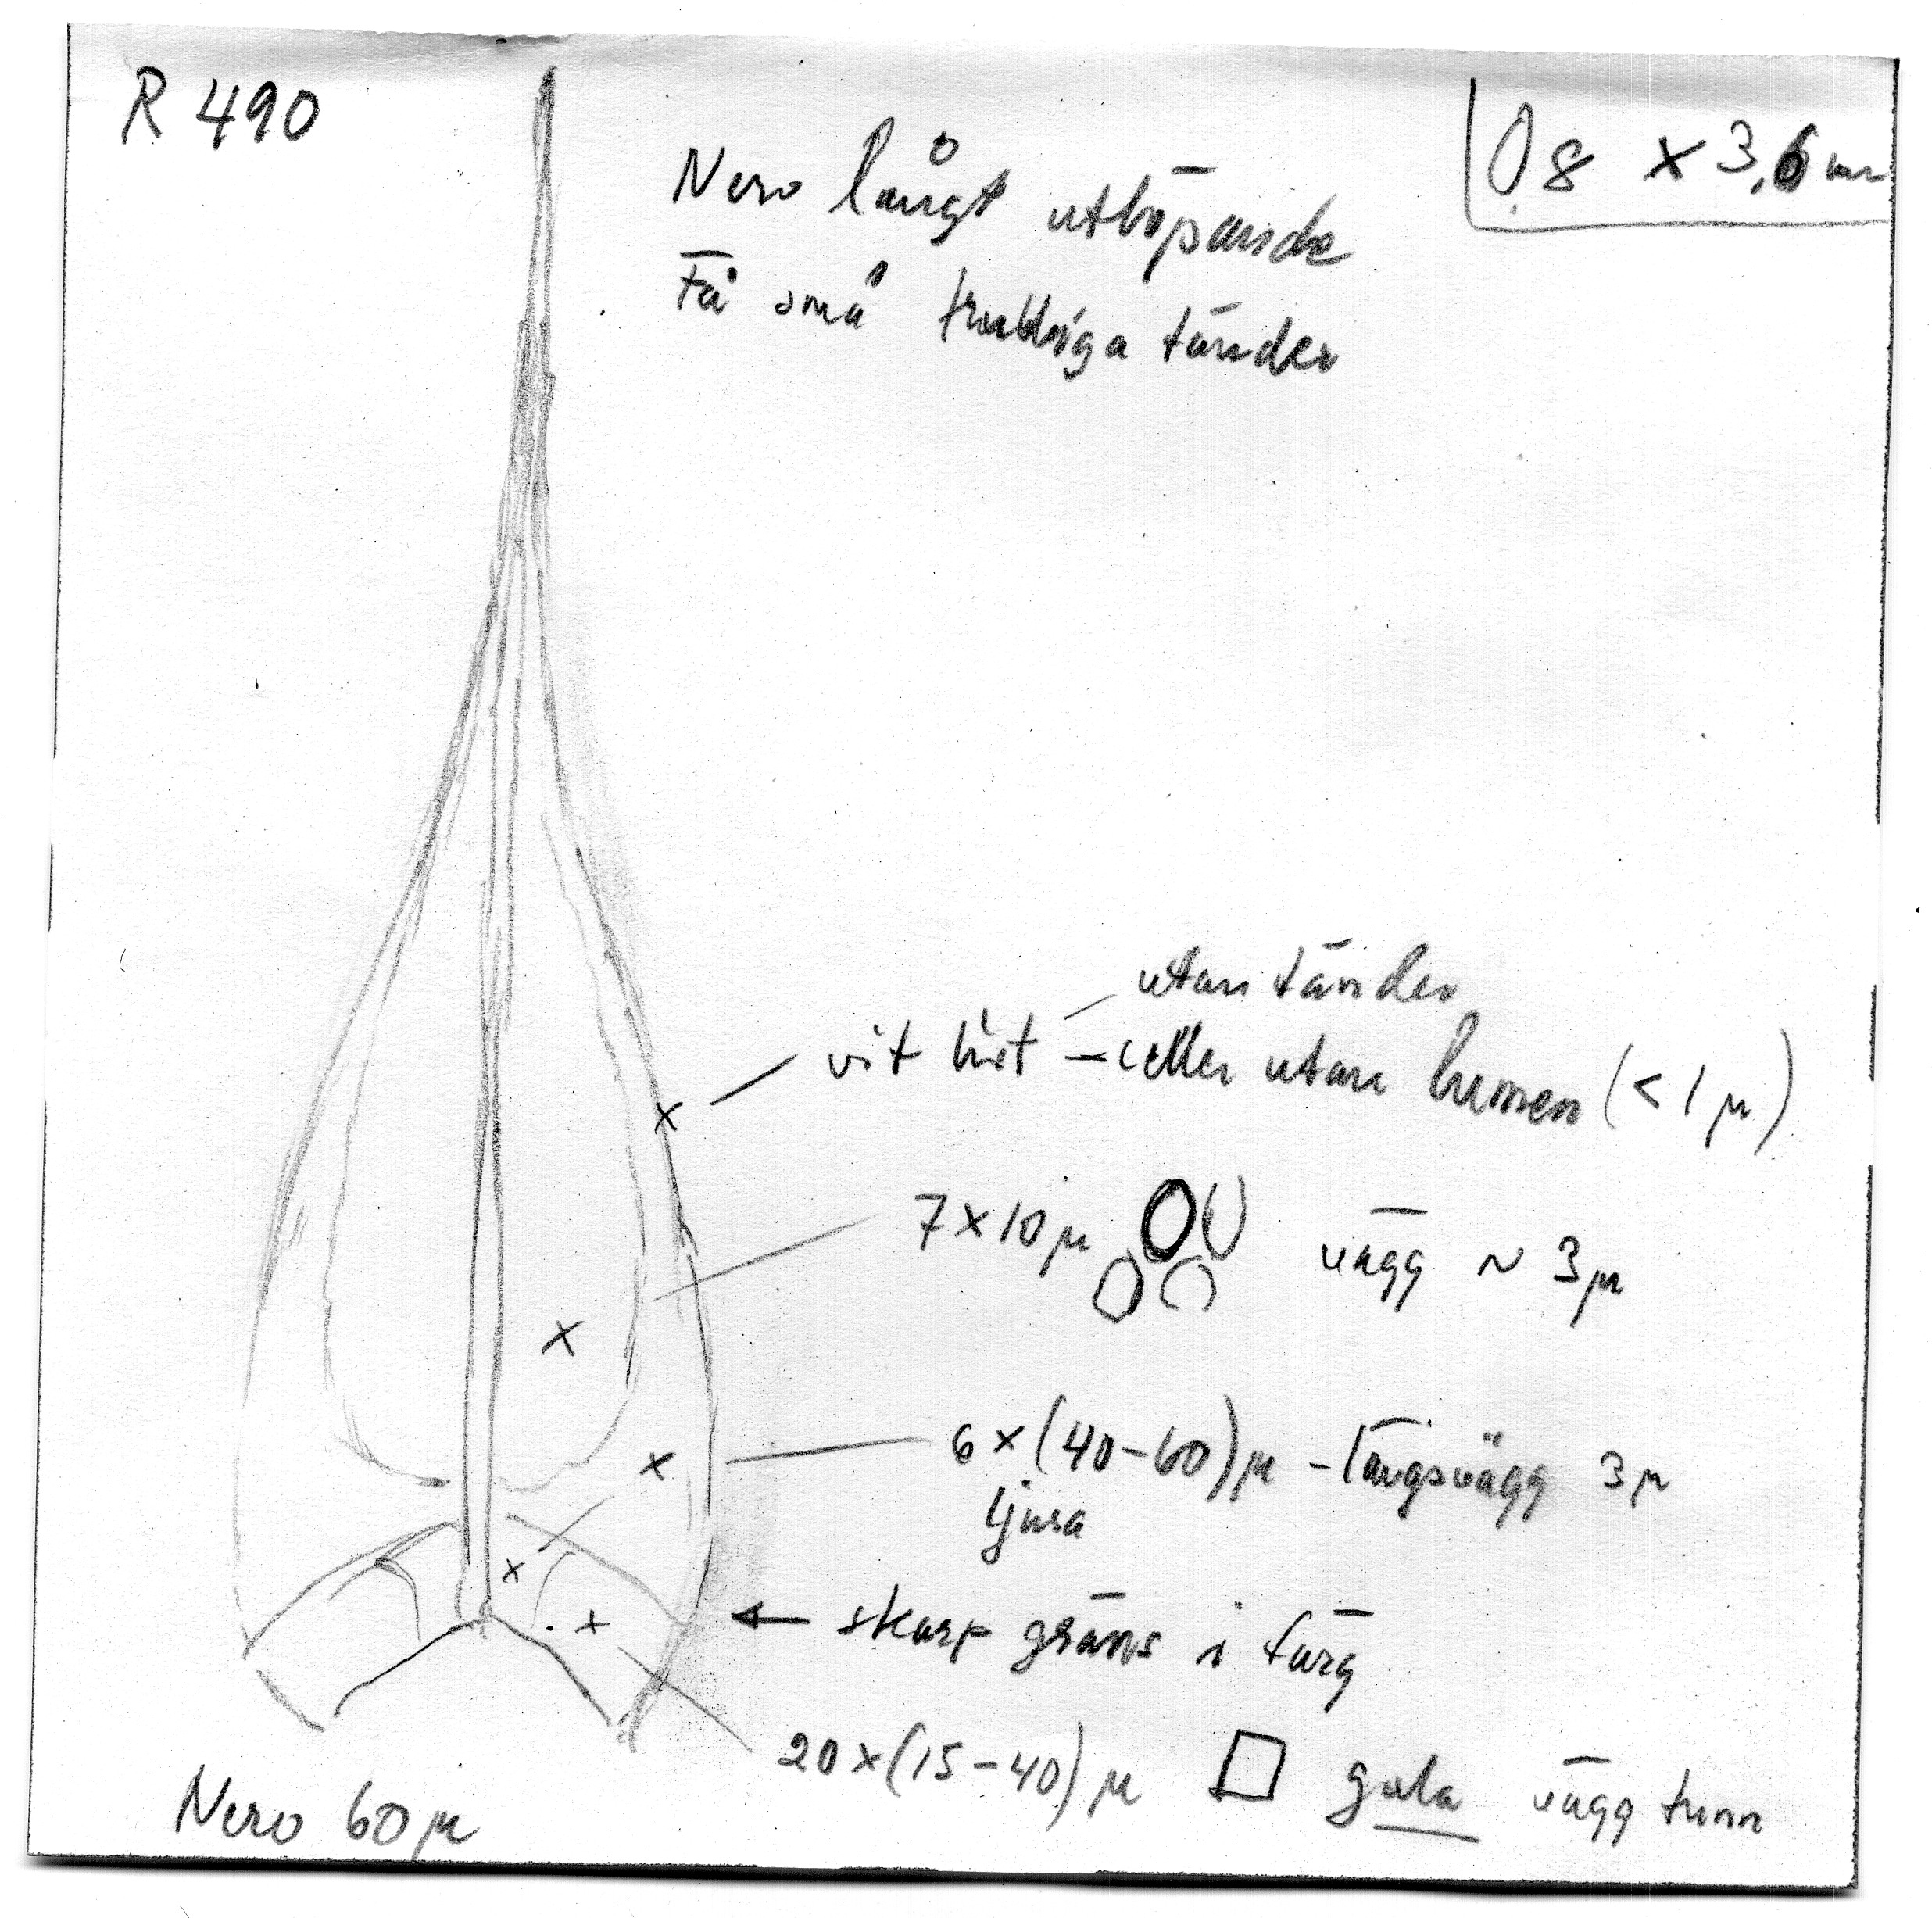 R 490
0.8 x 3,6 mm
Nerv långt utlöpande
Få små trubbiga tänder
utan tänder
vit list – celler utan lumen (< 1 µ)
7 x 10 µ vägg ~ 3 µ
6 x (40–60) µ – längsvägg 3 µ
ljusa
← skarp gräns i färg
20 x (15–40) µ gula vägg tunn
Nerv 60 µ